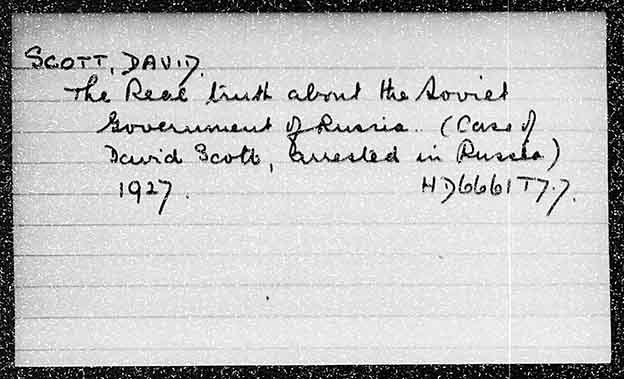 SCOTT, DAVID.
The Real truth about the Soviet
Government of Russia. (Case of
David Scott, arrested in Russia)
1927. HD6661T7.7.